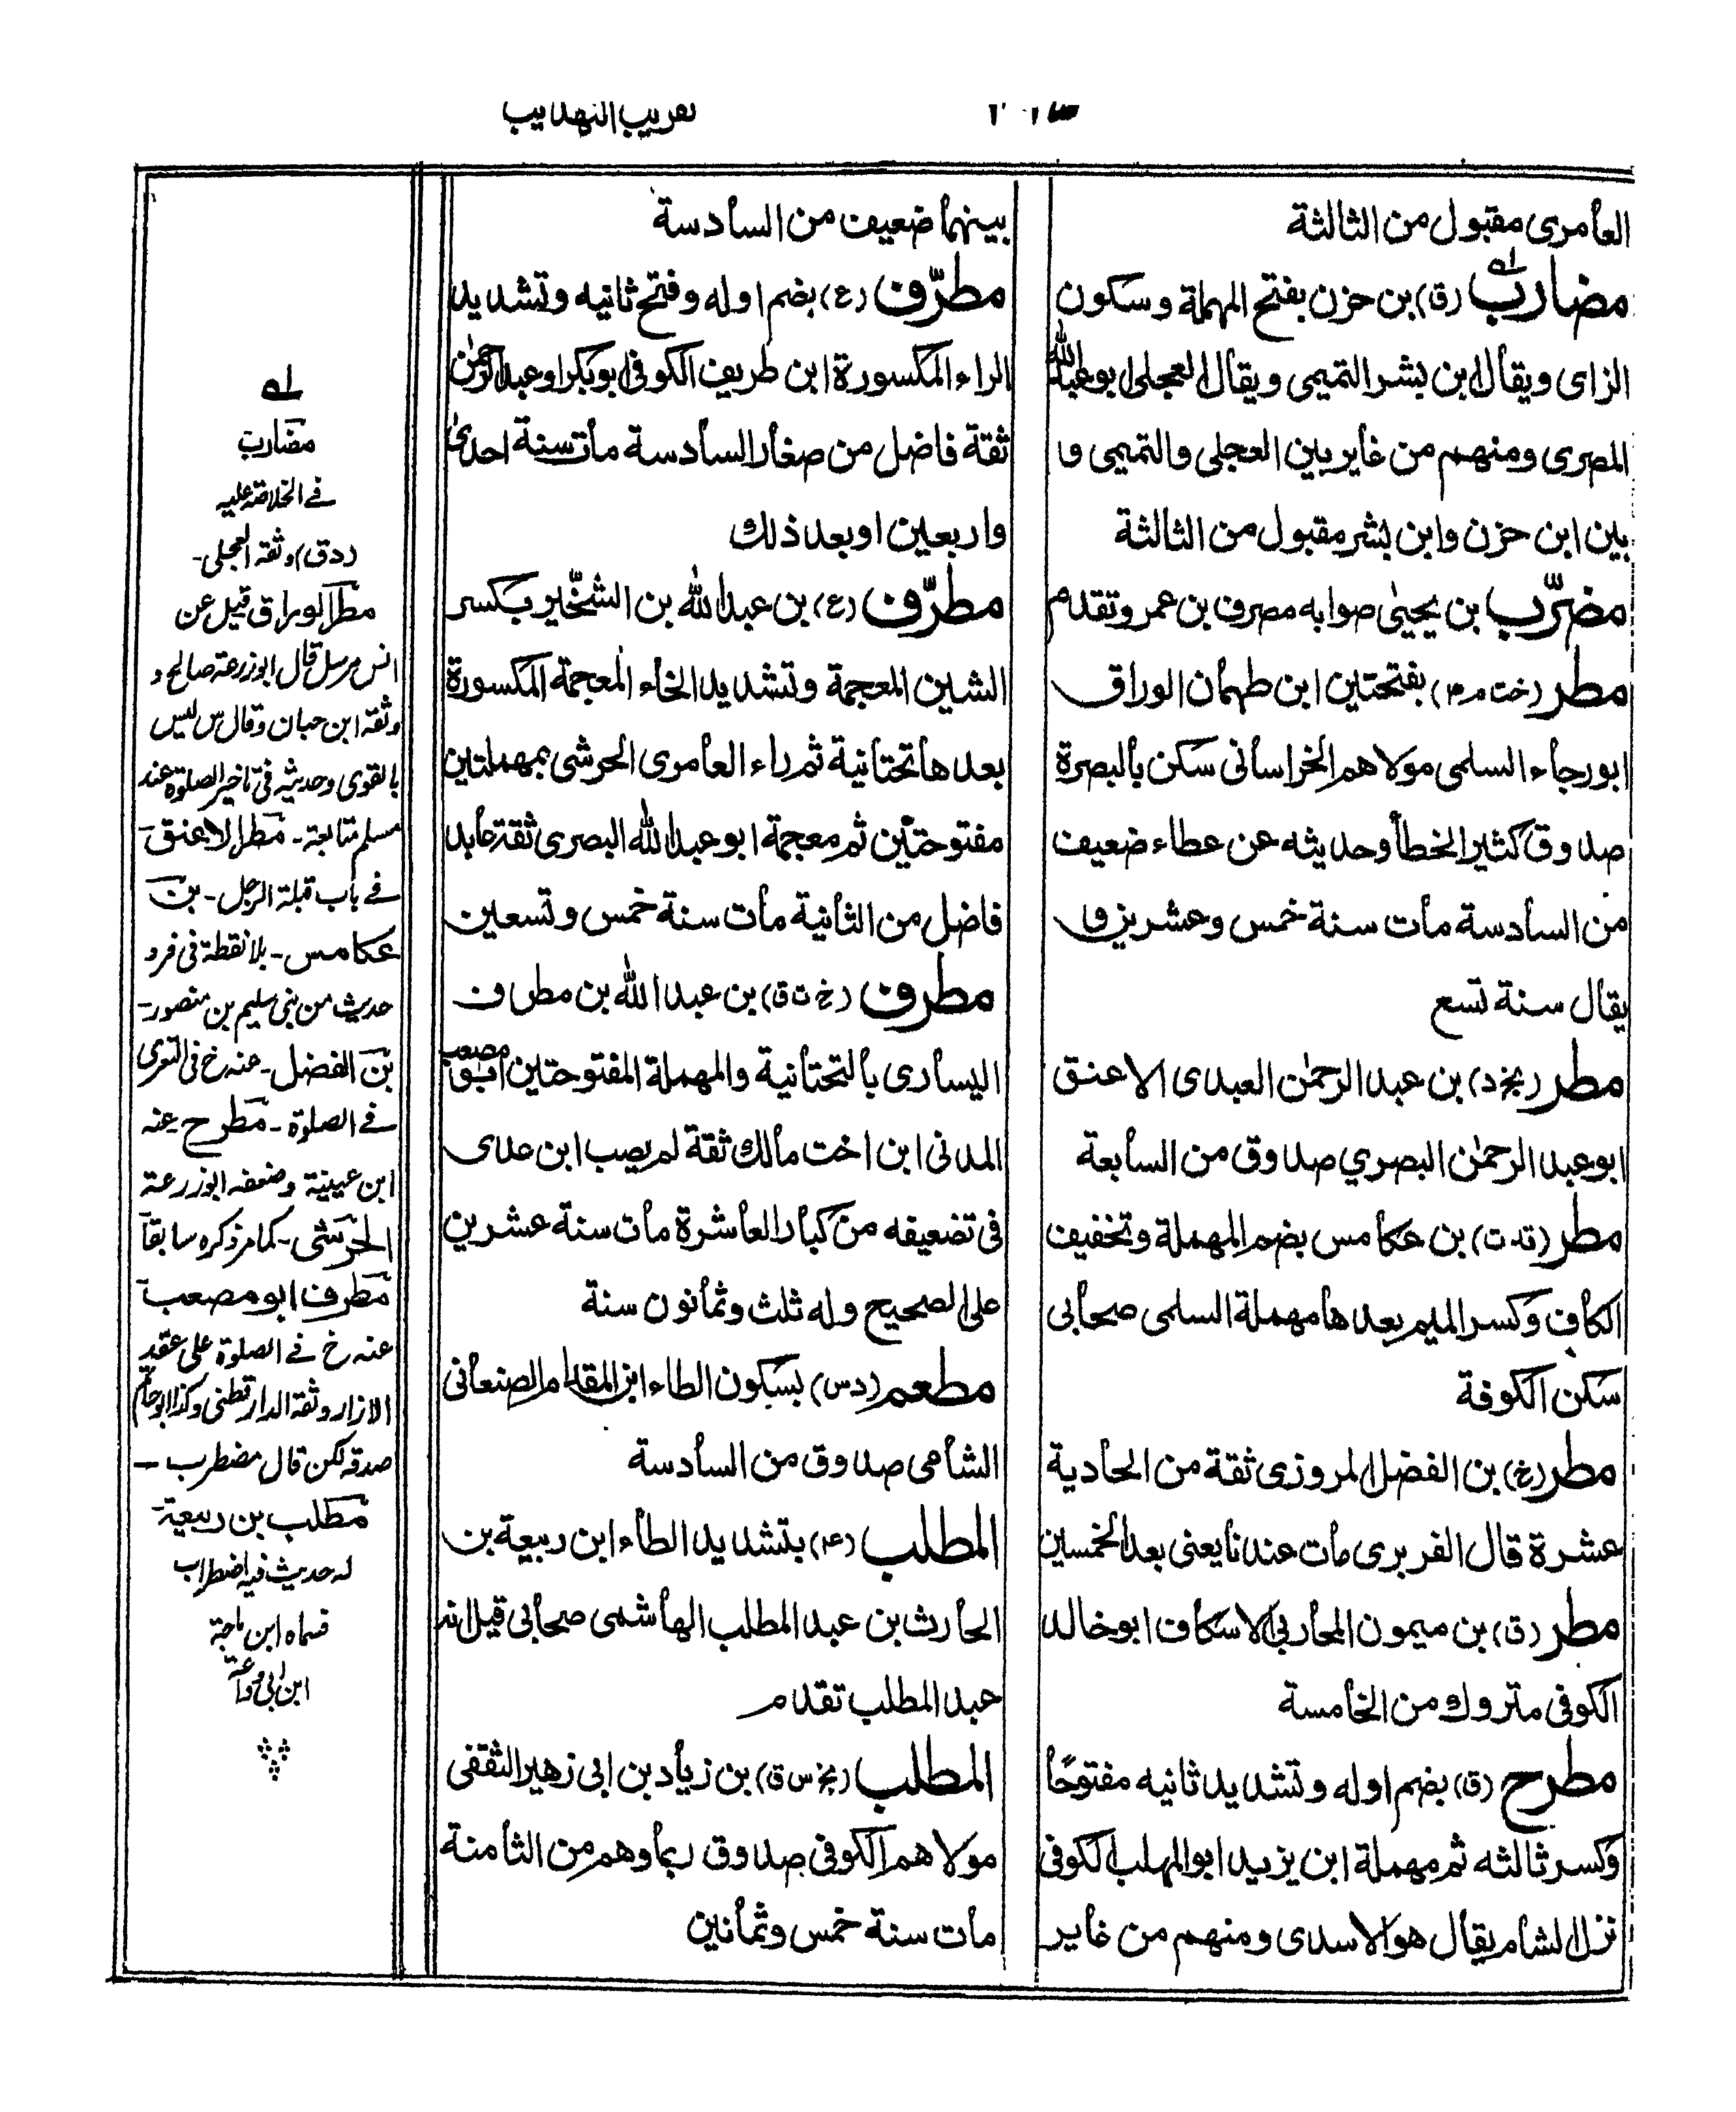 تقريب التهذيب
العامرى مقبول من الثالثة
مضارب (ق) بن حزن بفتح المهملة وسكون
الزاى ويقال ابن بشر التميمى ويقال العجلى ابو عبد الله
المصرى ومنهم من غاير بين العجلى والتميمى و
بين ابن حزن وابن بشر مقبول من الثالثة
مضرّب بن يحيىٰ صوابه مصرف بن عمر وتقدم
مطر (خت م ۴) بفتحتين ابن طهمان الوراق
ابو رجاء السلمى مولاهم الخراسانى سكن بالبصرة
صدوق كثير الخطأ وحديثه عن عطاء ضعيف
من السادسة مات سنة خمس وعشرين و
يقال سنة تسع
مطر (بخ د) بن عبد الرحمٰن العبدى الاعنق
ابو عبد الرحمٰن البصري صدوق من السابعة
مطر (قد ت) بن عكامس بضم المهملة وتخفيف
الكاف وكسر الميم بعدها مهملة السلمى صحابى
سكن الكوفة
مطر (خ) بن الفضل المروزى ثقة من الحادية
عشرة قال الفربرى مات عندنا يعنى بعد الخمسين
مطر (ق) بن ميمون المحاربى الاسكاف ابو خالد
الكوفى متروك من الخامسة
مطرح (ق) بضم اوله وتشديد ثانيه مفتوحًا
وكسر ثالثه ثم مهملة ابن يزيد ابو المهلب الكوفى
نزل الشام يقال هو الاسدى ومنهم من غاير
بينهما ضعيف من السادسة
مطرّف (ع) بضم اوله وفتح ثانيه وتشديد
الراء المكسورة ابن طريف الكوفى ابو بكر او عبد الرحمٰن
ثقة فاضل من صغار السادسة مات سنة احدى
واربعين او بعد ذلك
مطرّف (ع) بن عبد الله بن الشخّير بكسر
الشين المعجمة وتشديد الخاء المعجمة المكسورة
بعدها تحتانية ثم راء العامرى الحرشى بمهملتين
مفتوحتين ثم معجمة ابو عبد الله البصرى ثقة عابد
فاضل من الثانية مات سنة خمس وتسعين
مطرف (خ ت ق) بن عبد الله بن مطرف
اليسارى بالتحتانية والمهملة المفتوحتين ابو مصعب
المدنى ابن اخت مالك ثقة لم يصب ابن عدى
فى تضعيفه من كبار العاشرة مات سنة عشرين
على الصحيح وله ثلث وثمانون سنة
مطعم (د س) بسكون الطاء ابن المقدام الصنعانى
الشامى صدوق من السادسة
المطلب (عم) بتشديد الطاء ابن ربيعة بن
الحارث بن عبد المطلب الهاشمى صحابى قيل انه
عبد المطلب تقدم
المطلب (بخ س ق) بن زياد بن ابى زهير الثقفى
مولاهم الكوفى صدوق ربما وهم من الثامنة
مات سنة خمس وثمانين
مضارب
فى الخلاصة عليه
(د ق) وثقه العجلى -
مطر الوراق قيل عن
انس مرسل قال ابو زرعة صالح و
وثقه ابن حبان وقال س ليس
بالقوى وحديثه فى تاخير الصلوة عند
مسلم متابعة - مطر الاعنق
فى باب قبلة الرجل - بن
عكامس - بلا نقطة فى فرد
حديث من بنى سليم بن منصور -
بن الفضل - عنه خ فى التعرى
فى الصلوة - مطرح - عنه
ابن عيينة وضعفه ابو زرعة
الحرشى - كما مر ذكره سابقا
مطرف ابو مصعب
عنه خ فى الصلوة على عقد
الازار وثقه الدارقطنى وكذا ابو حاتم
صدقه لكن قال مضطرب -
مطلب بن ربيعة -
له حديث فيه اضطراب
فسماه ابن ماجة
ابن ابى وداعة